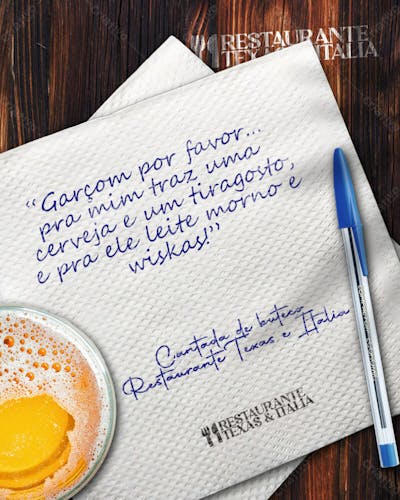 RESTAURANTE
TEXAS & ITALIA
“Garçom por favor...
pra mim traz uma
cerveja e um tiragosto,
e pra ele leite morno e
wiskas!”
Cantada de buteco
Restaurante Texas e Italia
RESTAURANTE
TEXAS & ITALIA